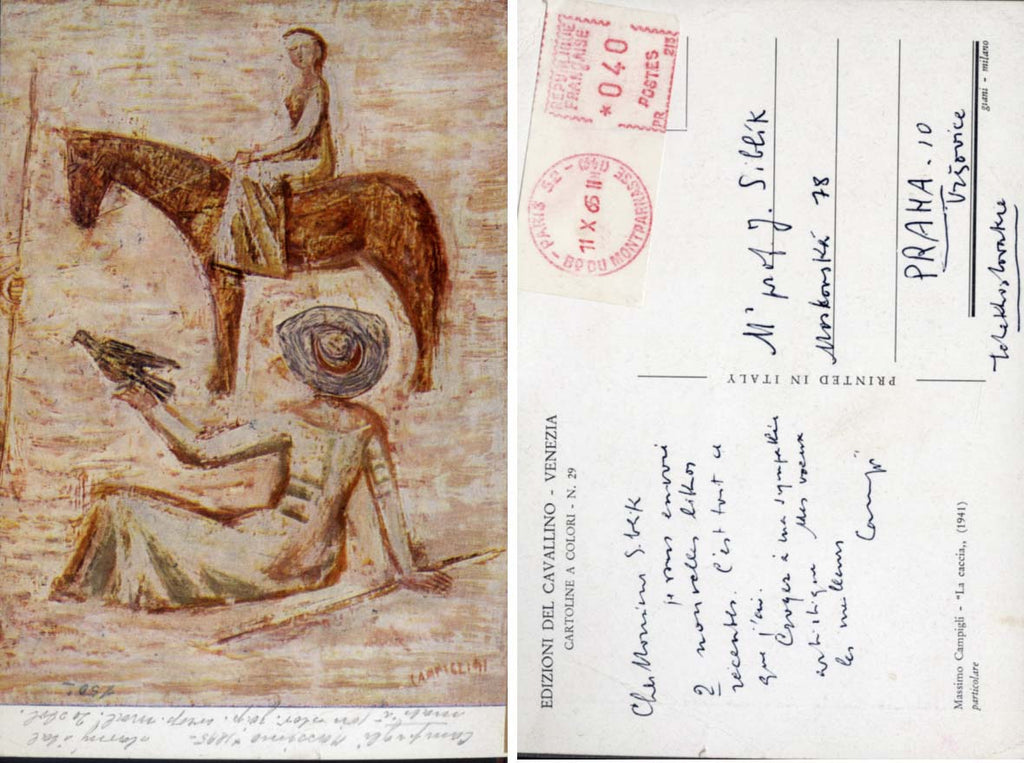 CAMPIGLI 41
150-
Campigli Massimo *1895-
REPUBLIQUE
FRANÇAISE
*040
POSTES
PR
PARIS 52 - (941)
11 X 65 11H
Bd DU MONTPARNASSE
Mr prof J. Siblík
Moskovská 78
PRAHA. 10
Vršovice
Tchekhoslovakie
giani - milano
PRINTED IN ITALY
EDIZIONI DEL CAVALLINO - VENEZIA
CARTOLINE A COLORI - N. 29
Cher Monsieur Siblik
je vous envoie
2 nouvelles lithos
récentes. C'est tout ce
que j'ai.
Croyez à ma sympathie
artistique Mes voeux
les meilleurs
Campigli
Massimo Campigli - "La caccia,, (1941)
particolare